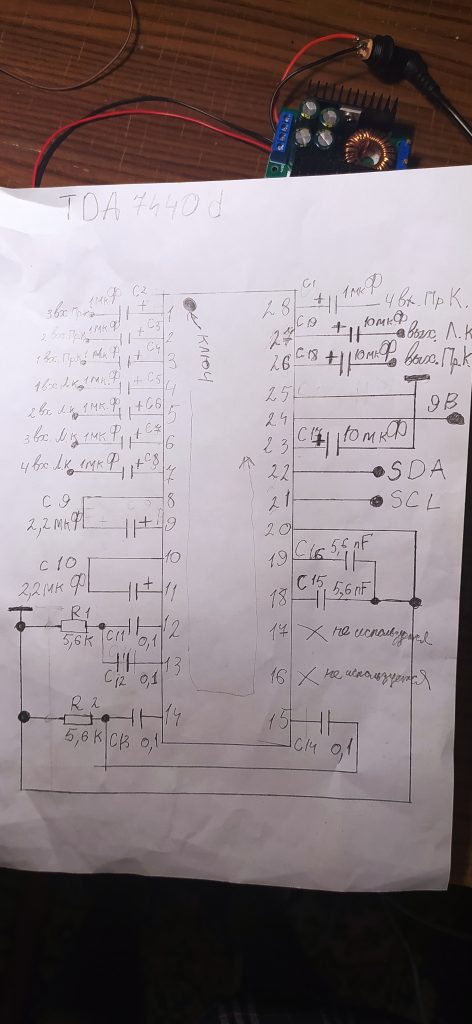 TDA 7440d
C2
3 вх. Пр.К 1мкФ + 1
C3
2 вх. Пр.К 1мкФ + 2
C4
1 вх. Пр.К 1мкФ + 3
1 вх. Л.К 1мкФ + C5 4
2 вх. Л.К 1мк.Ф + C6 5
3 вх. Л.К 1мкФ + C7 6
4 вх. Л.К 1мкФ + C8 7
8
C9
2,2мкФ + 9
10
C10
2,2мкФ + 11
R1
5,6К C11 0,1 12
C12 0,1 13
R2
5,6К C13 0,1 14
ключ
C1
28 + 1мкФ 4 вх. Пр К.
27 C19 + 10мкФ вых. Л.К
26 C18 + 10мкФ вых. Пр.К
25
24 9В
23 C17 + 10мкФ
22 SDA
21 SCL
20
19 C16 5,6nF
18 C15 5,6nF
17 не используется
16 не используется
15
C14 0,1